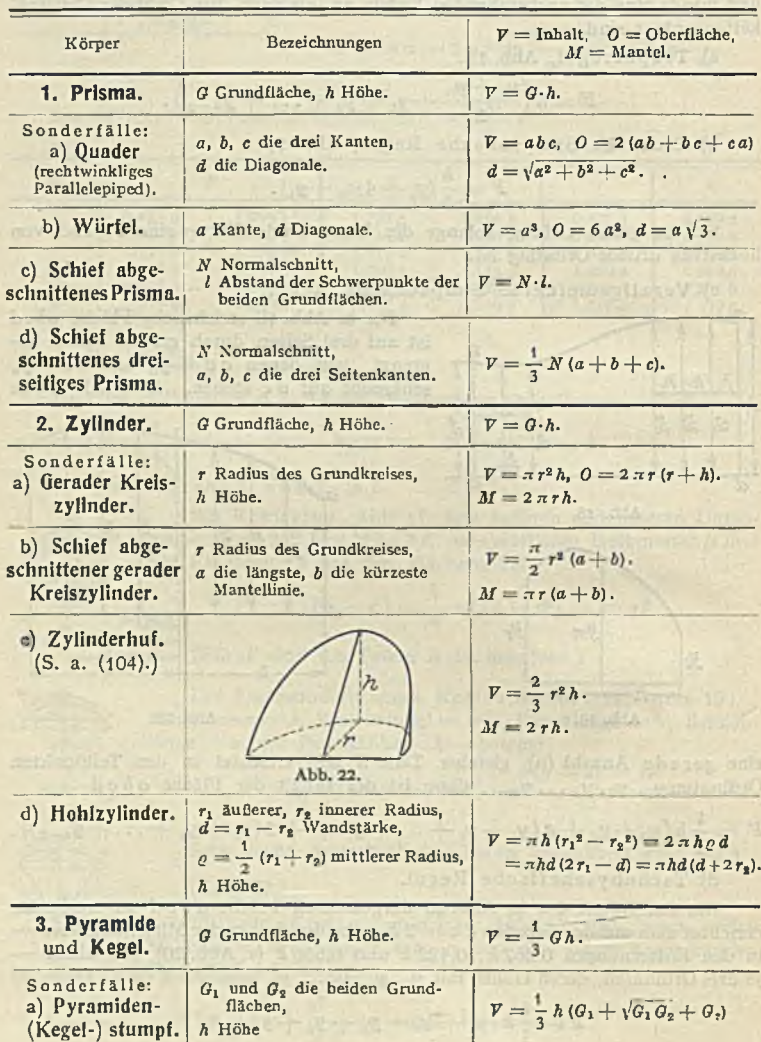 Körper
Bezeichnungen
V = Inhalt, O = Oberfläche,
M = Mantel.
1. Prisma.
G Grundfläche, h Höhe.
V = G·h.
Sonderfälle:
a) Quader
(rechtwinkliges
Parallelepiped).
a, b, c die drei Kanten,
d die Diagonale.
V = abc, O = 2 (ab + bc + ca)
d = √a² + b² + c².
b) Würfel.
a Kante, d Diagonale.
V = a³, O = 6 a², d = a √3.
c) Schief abge-
schnittenes Prisma.
N Normalschnitt,
l Abstand der Schwerpunkte der
beiden Grundflächen.
V = N·l.
d) Schief abge-
schnittenes drei-
seitiges Prisma.
N Normalschnitt,
a, b, c die drei Seitenkanten.
V = 1/3 N (a + b + c).
2. Zylinder.
G Grundfläche, h Höhe.
V = G·h.
Sonderfälle:
a) Gerader Kreis-
zylinder.
r Radius des Grundkreises,
h Höhe.
V = π r² h, O = 2 π r (r + h).
M = 2 π r h.
b) Schief abge-
schnittener gerader
Kreiszylinder.
r Radius des Grundkreises,
a die längste, b die kürzeste
Mantellinie.
V = π/2 r² (a + b).
M = π r (a + b).
c) Zylinderhuf.
(S. a. (104).)
h
r
Abb. 22.
V = 2/3 r² h.
M = 2 r h.
d) Hohlzylinder.
r₁ äußerer, r₂ innerer Radius,
d = r₁ − r₂ Wandstärke,
ϱ = 1/2 (r₁ + r₂) mittlerer Radius,
h Höhe.
V = π h (r₁² − r₂²) = 2 π h ϱ d
= π h d (2 r₁ − d) = π h d (d + 2 r₂).
3. Pyramide
und Kegel.
G Grundfläche, h Höhe.
V = 1/3 G h.
Sonderfälle:
a) Pyramiden-
(Kegel-) stumpf.
G₁ und G₂ die beiden Grund-
flächen,
h Höhe
V = 1/3 h (G₁ + √G₁ G₂ + G₂)